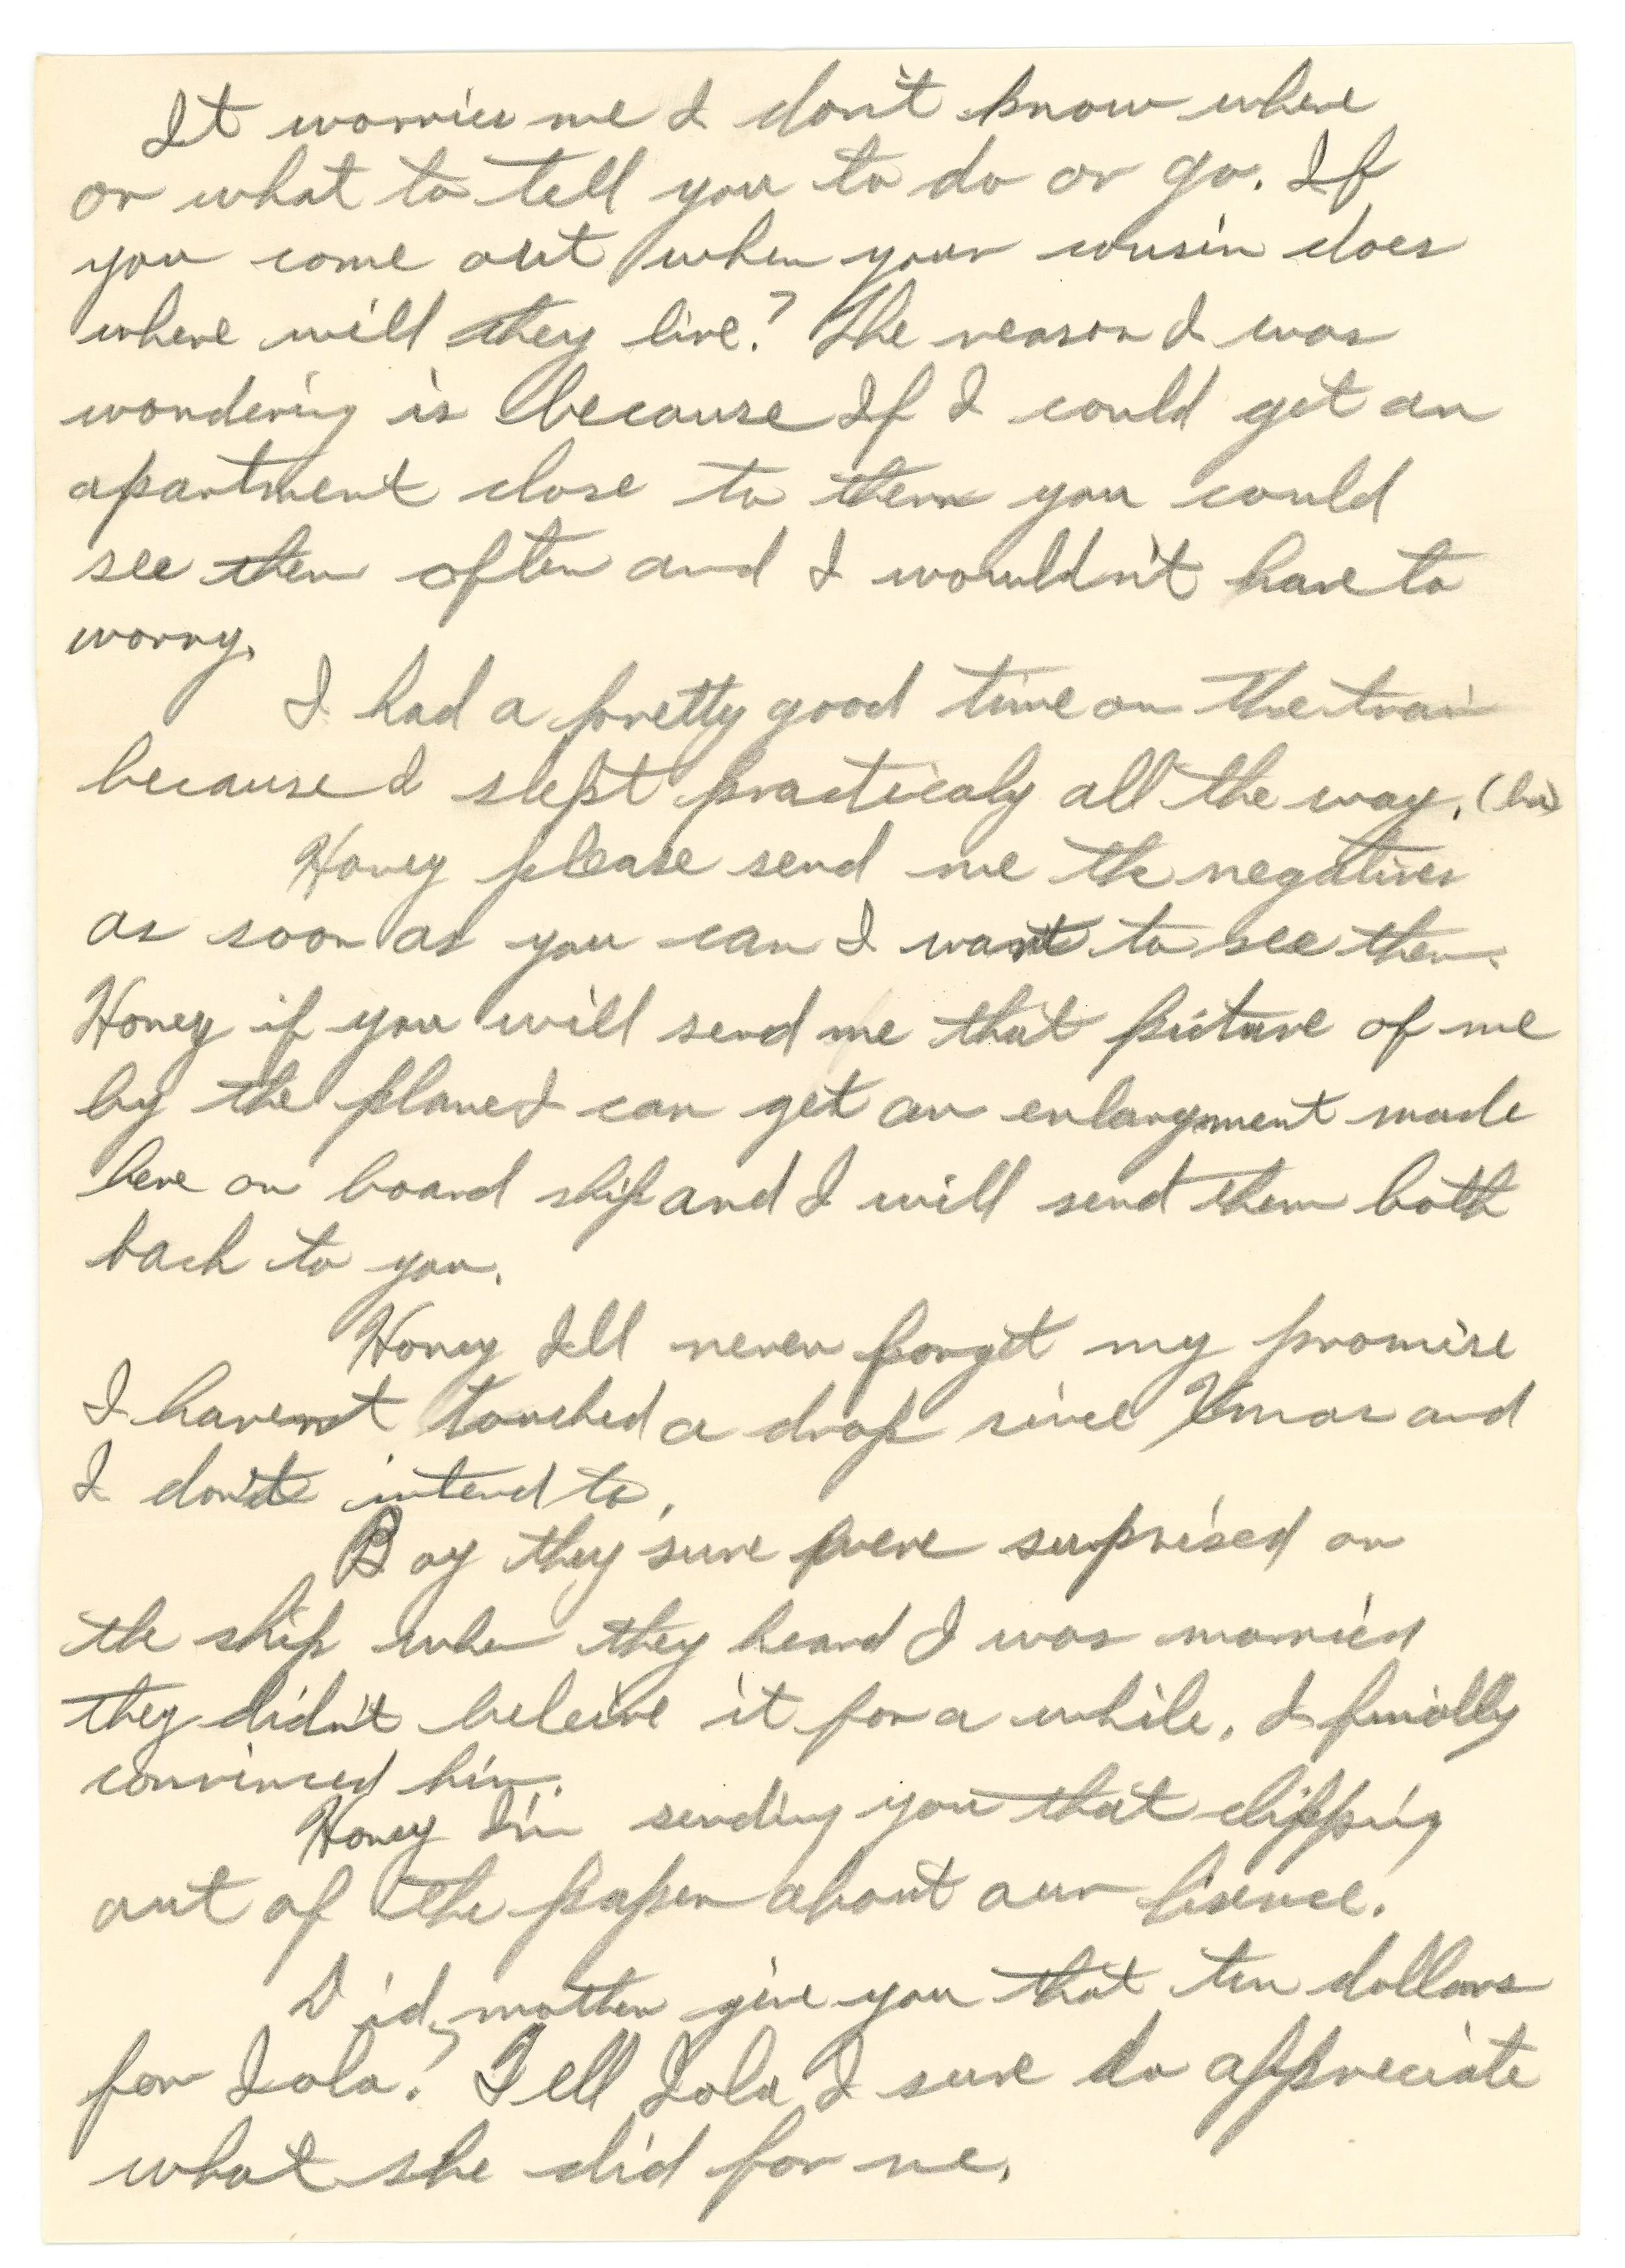 It worries me I don't know where
or what to tell you to do or go. If
you come out when your cousin does
where will they live? The reason I was
wondering is because If I could get an
apartment close to them you could
see them often and I wouldn't have to
worry.
I had a pretty good time on the train
because I slept practicaly all the way. (ha)
Honey please send me the negatives
as soon as you can I want to see them.
Honey if you will send me that picture of me
by the plane I can get an enlargment made
here on board ship and I will send them both
back to you.
Honey I'll never forget my promise
I havenot touched a drop since Xmas and
I don't intend to.
Boy they sure were surprised on
the ship when they heard I was married
they didn't beleive it for a while. I finally
convinced him.
Honey I'm sending you that clipping
out of the paper about our lisence.
Did mother give you that ten dollars
for Iola? Tell Iola I sure do appreciate
what she did for me.